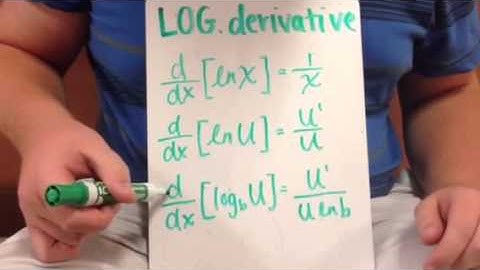 LOG. derivative
d/dx [ln x] = 1/x
d/dx [ln U] = U'/U
d/dx [log_b U] = U'/U ln b